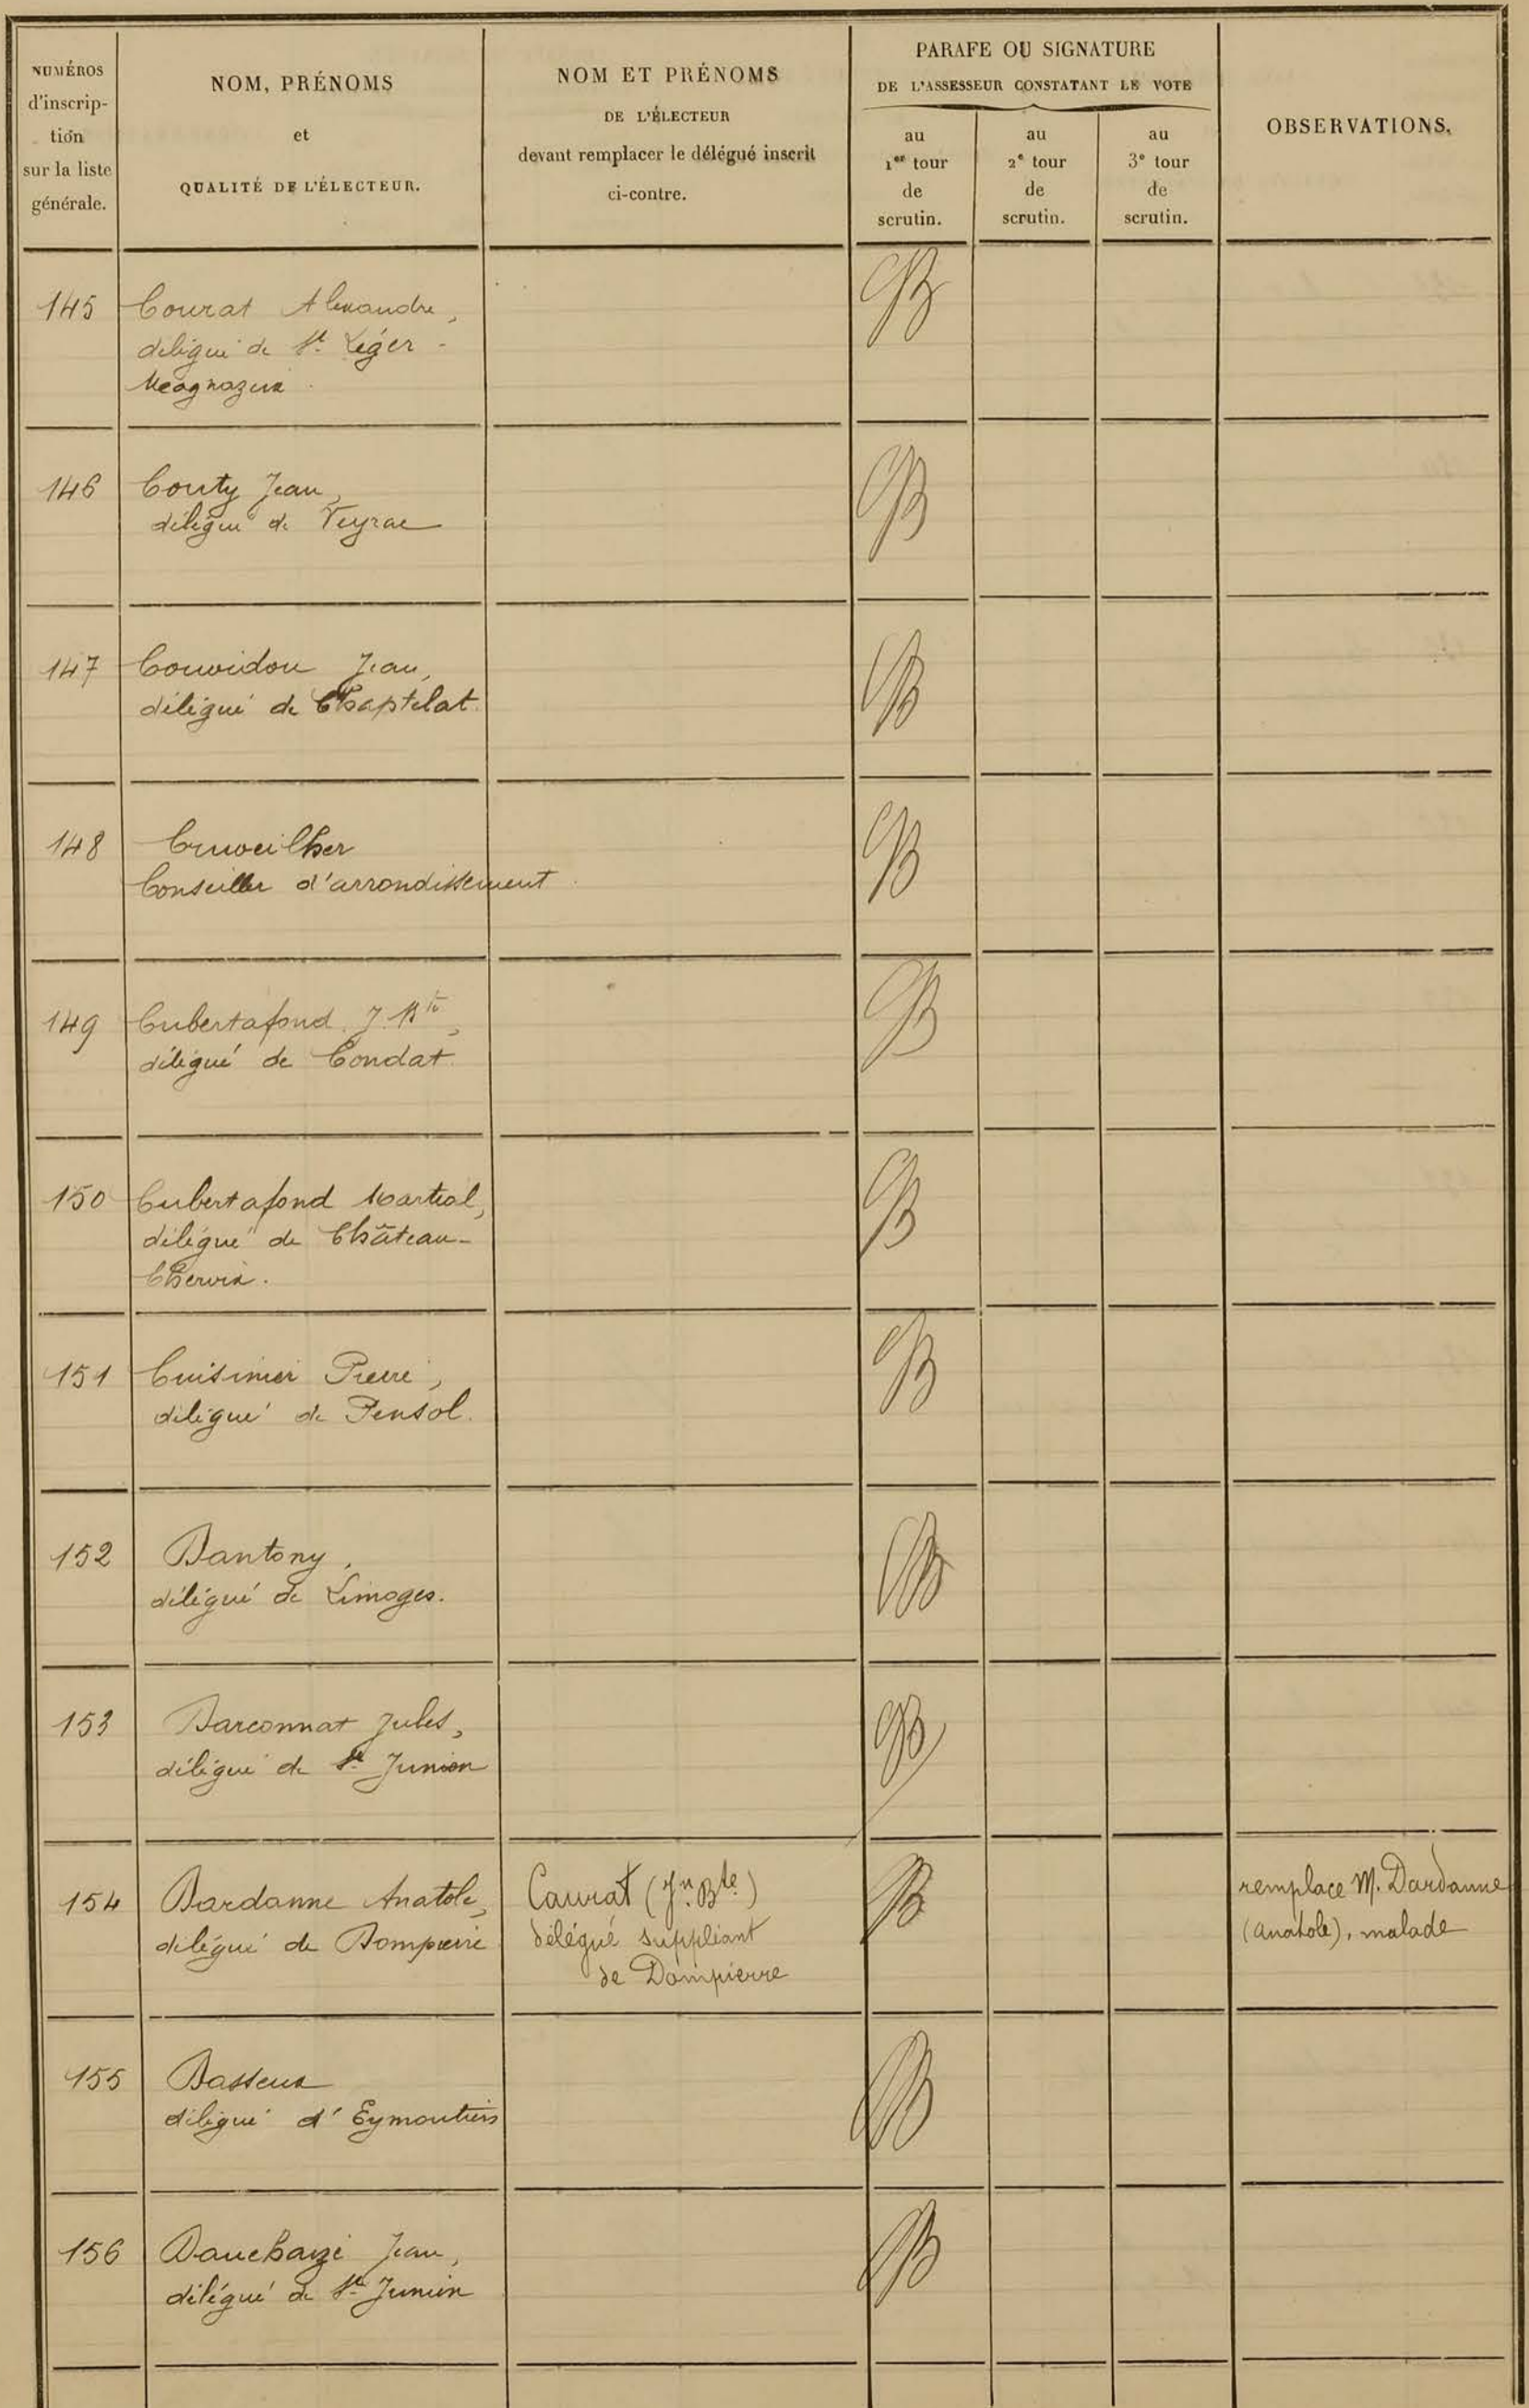 NUMÉROS
d'inscrip-
tion
sur la liste
générale.
NOM, PRÉNOMS
et
QUALITÉ DE L'ÉLECTEUR.
NOM ET PRÉNOMS
DE L'ÉLECTEUR
devant remplacer le délégué inscrit
ci-contre.
PARAFE OU SIGNATURE
DE L'ASSESSEUR CONSTATANT LE VOTE
au
1er tour
de
scrutin.
au
2e tour
de
scrutin.
au
3e tour
de
scrutin.
OBSERVATIONS.
145 Courat Alexandre,
délégué de St Léger-
Magnazeix
146 Couty Jean,
délégué de Veyrac
147 Couvidou Jean,
délégué de Chaptelat
148 Cruveilher
Conseiller d'arrondissement
149 Cubertafond J. Bte,
délégué de Condat
150 Cubertafond Martial,
délégué de Château-
Chervix.
151 Cuisinier Pierre,
délégué de Pensol.
152 Dantony,
délégué de Limoges.
153 Darconnat Jules,
délégué de St Junien
154 Dardanne Anatole,
délégué de Dompierre
Caurat (Jn Bte)
délégué suppléant
de Dompierre
remplace M. Dardanne
(Anatole), malade
155 Dasseux
délégué d'Eymoutiers
156 Jean,
délégué de St Junien